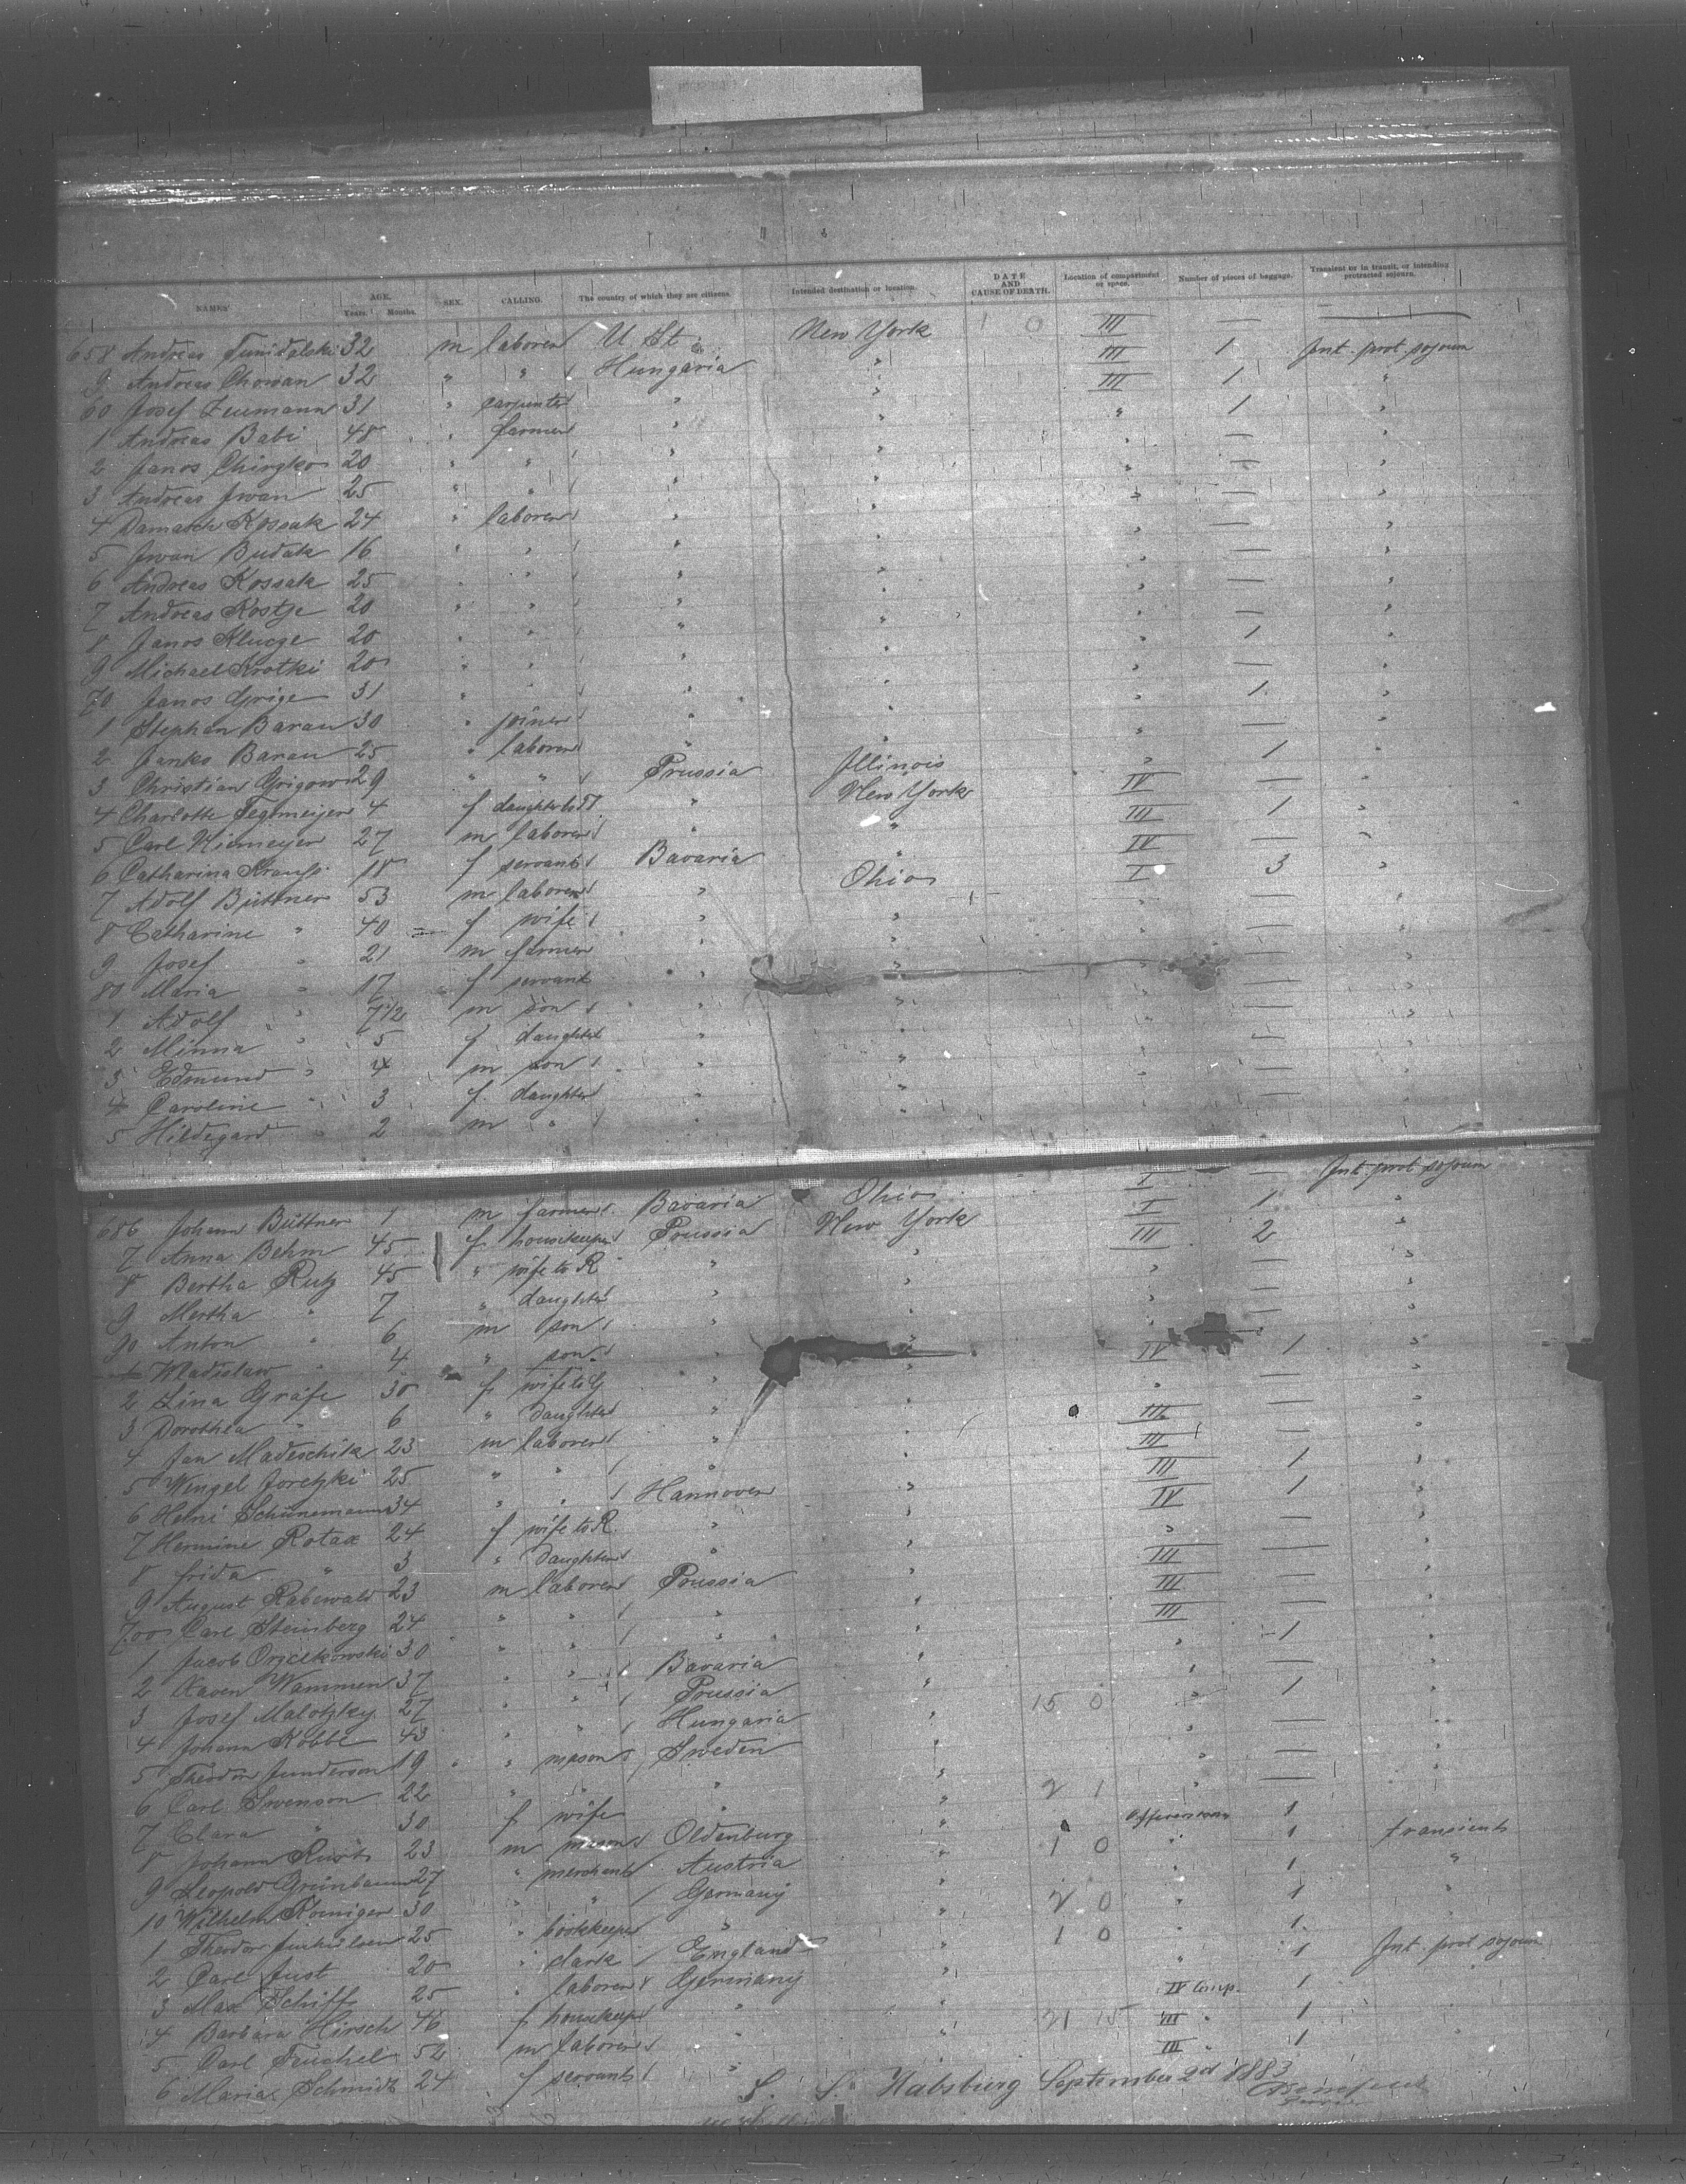 NAMES AGE. Years. Months. SEX. CALLING. The country of which they are citizens. Intended destination or location. DATE AND CAUSE OF DEATH. Location of compartment or space. Number of pieces of baggage. Transient or in transit, or intending protracted sojourn.
658 Andreas 32 m laborer U. St. New York 1 0 III —
9 Andreas Chowan 32 " " Hungaria " III 1 Int. prot. sojourn
60 Josef Zeumann 31 " carpenter " " III 1 "
1 Andreas Babi 48 " farmer " " " 1 "
2 Janos Chingko 20 " " " " " — "
3 Andreas Iwan 25 " " " " " — "
4 Damasch Kossak 24 " laborer " " " — "
5 Iwan Budak 16 " " " " " — "
6 Andreas Kossak 25 " " " " " — "
7 Andreas Kostje 20 " " " " " — "
8 Janos Klucge 20 " " " " " — "
9 Michael Krotki 20 " " " " " 1 "
70 Janos Grige 31 " " " " " — "
1 Stephan Barau 30 " joiner " " " 1 "
2 Janko Barau 25 " laborer " " " — "
3 Christian Grigow 29 " " Prussia Illinois " 1
4 Charlotte Tegtmeijer 4 f daughter to T. " New York IV — "
5 Carl Kiemeijer 27 m laborer " " III 1 "
6 Catharina Krauß 18 f servant Bavaria " IV — "
7 Adolf Büttner 53 m laborer " Ohio I 3 "
8 Catharine " 40 f wife " " " — "
9 Josef " 21 m farmer " " " — "
80 Maria " 17 f servant " " " — "
1 Adolf " 7 1/2 m son " " " — "
2 Minna " 5 f daughter " " " — "
3 Edmund " 4 m son " " " — "
4 Caroline " 3 f daughter " " " — "
5 Hildegard " 2 m " " " —
686 Johann Büttner 1 m farmer Bavaria Ohio I — Int. prot. sojourn
7 Anna Behm 45 f housekeeper Prussia New York I 1 "
8 Bertha Rutz 45 " wife to R. " " III 2 "
9 Mertha " 7 " daughter " " " — "
90 Anton " 6 m son " " " — "
Wladislaw " 4 " son " " " — "
2 Lina Gräfe 30 f wife to G. " " IV 1 "
3 Dorothea " 6 " daughter " " " — "
4 Jan Madeschik 23 m laborer " " III — "
5 Wenzel Joretzki 25 " " " " III — "
6 Heini Schünemann 34 " " Hannover " III 1 "
7 Hermine Rotax 24 f wife to R. " " IV 1 "
8 Frida " 3 " daughter " " " — "
9 August Rabewald 23 m laborer Prussia " III — "
700 Carl Steinberg 24 " " " " III — "
1 Jacob 30 " " " " III — "
2 Xaver Wammen 37 " " Bavaria " " 1 "
3 Josef Malotzky 27 " " Prussia " 15 0 " — "
4 Johann Kobbe 43 " " Hungaria " " 1 "
5 Theodor Junderson 19 " mason Sweden " " — "
6 Carl Swenson 22 " " " " 2 1 " — "
7 Clara " 30 f wife " " " — "
8 Johann 23 m mason Oldenburg " 1 0 1
9 Leopold Grünbaum 27 " merchant Austria " " 1 transient
10 Wilhelm Roeniger 30 " " Germany " 2 0 " 1 "
1 Theodor 25 " bookkeeper " " 1 0 " 1 "
2 Carl Just 20 " clark England " " 1 "
3 Max Schiff 25 " laborer Germany " " 1 Int. prot. sojourn
4 Barbara Hirsch 46 f housekeeper " " 21 15 IV Comp. 1
5 Carl Teuchel 52 m laborer " " III " 1
6 Maria Schmidt 24 f servant " III " 1
S. S. Habsburg September 2nd 1883